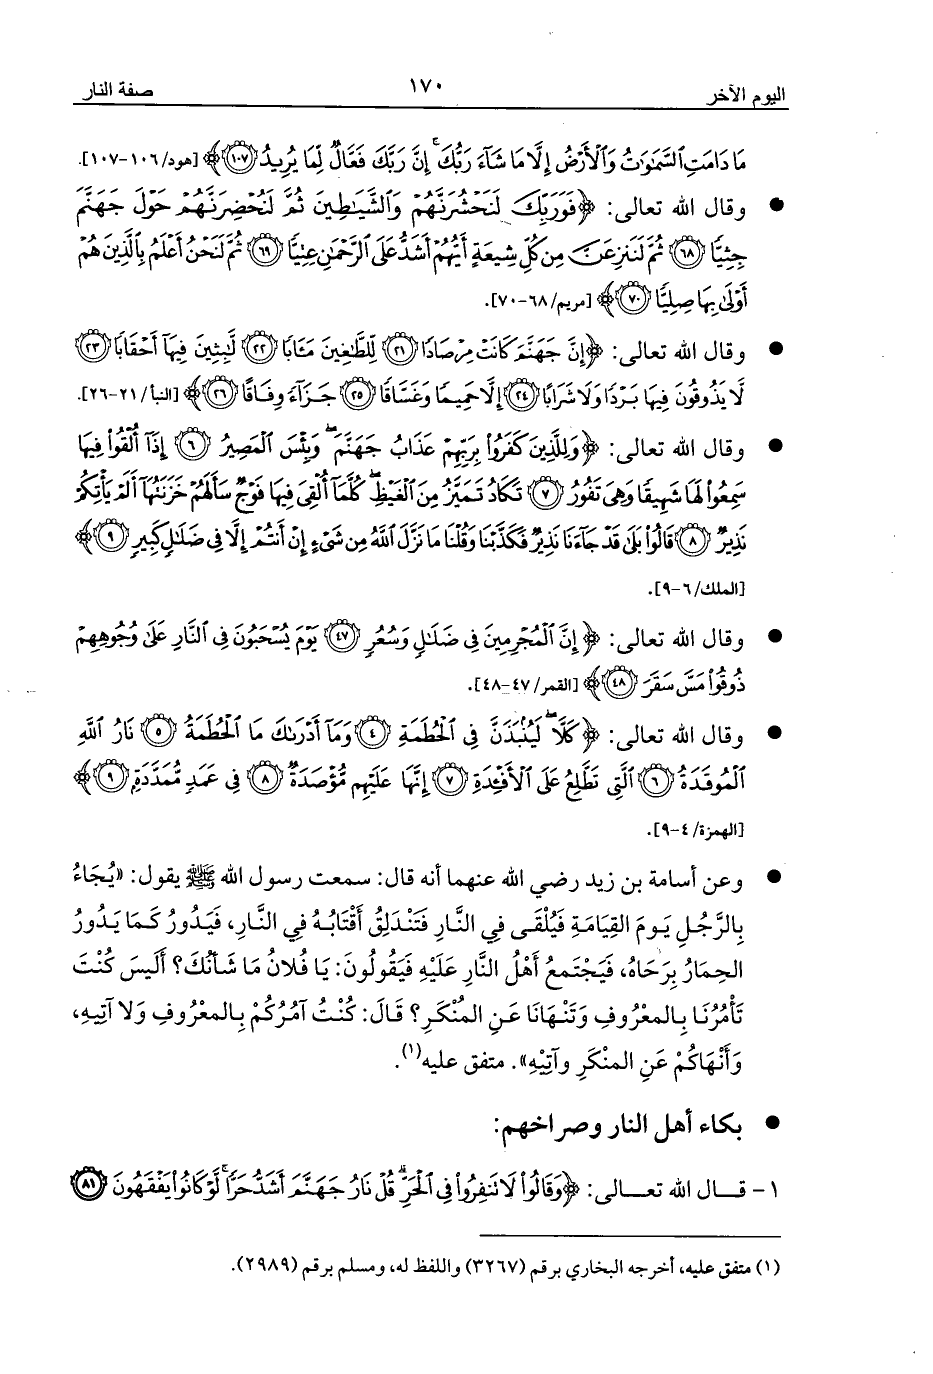 اليوم الآخر ١٧٠ صفة النار
مَا دَامَتِ ٱلسَّمَٰوَٰتُ وَٱلْأَرْضُ إِلَّا مَا شَآءَ رَبُّكَ ۚ إِنَّ رَبَّكَ فَعَّالٌ لِّمَا يُرِيدُ (١٠٧)﴾ [هود/١٠٦-١٠٧].
● وقال الله تعالى: ﴿فَوَرَبِّكَ لَنَحْشُرَنَّهُمْ وَٱلشَّيَٰطِينَ ثُمَّ لَنُحْضِرَنَّهُمْ حَوْلَ جَهَنَّمَ
جِثِيًّا (٦٨) ثُمَّ لَنَنزِعَنَّ مِن كُلِّ شِيعَةٍ أَيُّهُمْ أَشَدُّ عَلَى ٱلرَّحْمَٰنِ عِتِيًّا (٦٩) ثُمَّ لَنَحْنُ أَعْلَمُ بِٱلَّذِينَ هُمْ
أَوْلَىٰ بِهَا صِلِيًّا (٧٠)﴾ [مريم/٦٨-٧٠].
● وقال الله تعالى: ﴿إِنَّ جَهَنَّمَ كَانَتْ مِرْصَادًا (٢١) لِّلطَّٰغِينَ مَـَٔابًا (٢٢) لَّٰبِثِينَ فِيهَآ أَحْقَابًا (٢٣)
لَّا يَذُوقُونَ فِيهَا بَرْدًا وَلَا شَرَابًا (٢٤) إِلَّا حَمِيمًا وَغَسَّاقًا (٢٥) جَزَآءً وِفَاقًا (٢٦)﴾ [النبأ/٢١-٢٦].
● وقال الله تعالى: ﴿وَلِلَّذِينَ كَفَرُوا۟ بِرَبِّهِمْ عَذَابُ جَهَنَّمَ ۖ وَبِئْسَ ٱلْمَصِيرُ (٦) إِذَآ أُلْقُوا۟ فِيهَا
سَمِعُوا۟ لَهَا شَهِيقًا وَهِىَ تَفُورُ (٧) تَكَادُ تَمَيَّزُ مِنَ ٱلْغَيْظِ ۖ كُلَّمَآ أُلْقِىَ فِيهَا فَوْجٌ سَأَلَهُمْ خَزَنَتُهَآ أَلَمْ يَأْتِكُمْ
نَذِيرٌ (٨) قَالُوا۟ بَلَىٰ قَدْ جَآءَنَا نَذِيرٌ فَكَذَّبْنَا وَقُلْنَا مَا نَزَّلَ ٱللَّهُ مِن شَىْءٍ إِنْ أَنتُمْ إِلَّا فِى ضَلَٰلٍ كَبِيرٍ (٩)﴾
[الملك/٦-٩].
● وقال الله تعالى: ﴿إِنَّ ٱلْمُجْرِمِينَ فِى ضَلَٰلٍ وَسُعُرٍ (٤٧) يَوْمَ يُسْحَبُونَ فِى ٱلنَّارِ عَلَىٰ وُجُوهِهِمْ
ذُوقُوا۟ مَسَّ سَقَرَ (٤٨)﴾ [القمر/٤٧-٤٨].
● وقال الله تعالى: ﴿كَلَّا ۖ لَيُنۢبَذَنَّ فِى ٱلْحُطَمَةِ (٤) وَمَآ أَدْرَىٰكَ مَا ٱلْحُطَمَةُ (٥) نَارُ ٱللَّهِ
ٱلْمُوقَدَةُ (٦) ٱلَّتِى تَطَّلِعُ عَلَى ٱلْأَفْـِٔدَةِ (٧) إِنَّهَا عَلَيْهِم مُّؤْصَدَةٌ (٨) فِى عَمَدٍ مُّمَدَّدَةٍۭ (٩)﴾
[الهمزة/٤-٩].
● وعن أسامة بن زيد رضي الله عنهما أنه قال: سمعت رسول الله ﷺ يقول: «يُجَاءُ
بِالرَّجُلِ يَومَ القِيَامَةِ فَيُلْقَى فِي النَّارِ فَتَنْدَلِقُ أَقْتَابُهُ فِي النَّارِ، فَيَدُورُ كَمَا يَدُورُ
الحِمَارُ بِرَحَاهُ، فَيَجْتَمِعُ أَهْلُ النَّارِ عَلَيْهِ فَيَقُولُونَ: يَا فُلانُ مَا شَأنُكَ؟ أَلَيسَ كُنْتَ
تَأْمُرُنَا بِالمعْرُوفِ وَتَنْهَانَا عَنِ المُنْكَرِ؟ قَالَ: كُنْتُ آمُرُكُمْ بِالمعْرُوفِ وَلا آتِيهِ،
وَأَنْهَاكُمْ عَنِ المنْكَرِ وآتِيْهِ». متفق عليه(١).
● بكاء أهل النار وصراخهم:
١- قال الله تعالى: ﴿وَقَالُوا۟ لَا تَنفِرُوا۟ فِى ٱلْحَرِّ ۗ قُلْ نَارُ جَهَنَّمَ أَشَدُّ حَرًّا ۚ لَّوْ كَانُوا۟ يَفْقَهُونَ (٨١)
(١) متفق عليه، أخرجه البخاري برقم (٣٢٦٧) واللفظ له، ومسلم برقم (٢٩٨٩).